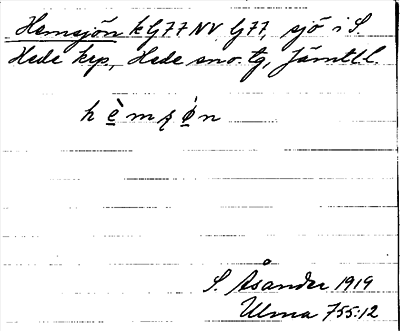 Hemsjön k G77 NV G77, sjö i S.
Hede krp., Hede sno. tg, Jämtl l.
h è m s ö n
S. Åsander 1919
Ulma 755:12